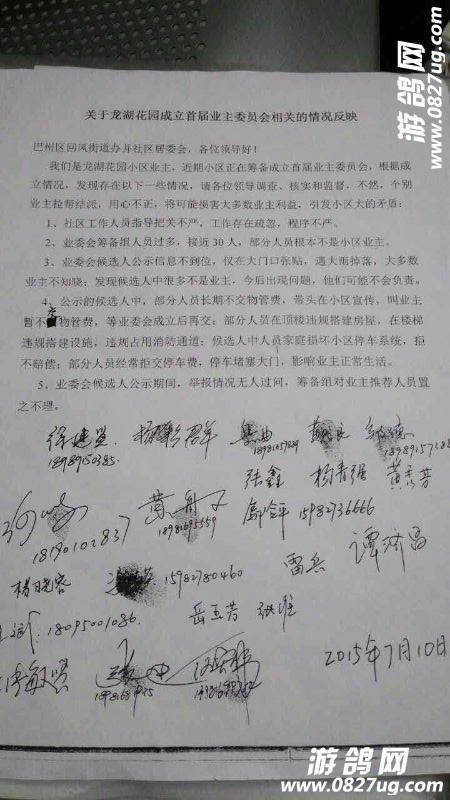 游鸽网
www.0827ug.com
关于龙湖花园成立首届业主委员会相关的情况反映
巴州区回风街道办并社区居委会，各位领导好！
我们是龙湖花园小区业主，近期小区正在筹备成立首届业主委员会，根据成
立情况，发现存在以下一些情况，请各位领导调查、核实和监督，不然，个别
业主拉帮结派，用心不正，将可能损害大多数业主利益，引发小区大的矛盾：
1、社区工作人员指导把关不严，工作存在疏忽，程序不严。
2、业委会筹备组人员过多，接近30人，部分人员根本不是小区业主。
3、业委会候选人公示信息不到位，仅在大门口张贴，遇大雨掉落，大多数
业主不知晓；发现候选人中很多不是业主，今后出现问题，他们可能不会负责。
4、公示的候选人中，部分人员长期不交物管费，带头在小区宣传，叫业主
暂不交物管费，等业委会成立后再交；部分人员在顶楼违规搭建房屋，在楼梯
违规搭建设施，违规占用消防通道；候选人中人员家庭损坏小区停车系统，拒
不赔偿；部分人员经常拒交停车费，停车堵塞大门，影响业主正常生活。
5、业委会候选人公示期间，举报情况无人过问，筹备组对业主推荐人员置
之不理。
张鑫 杨青强 黄秀芳
18190102837 15982736666
杨晓容 15982780460 雷兵
18095001086
岳玉芳
2015年7月10日
游鸽网
www.0827ug.com